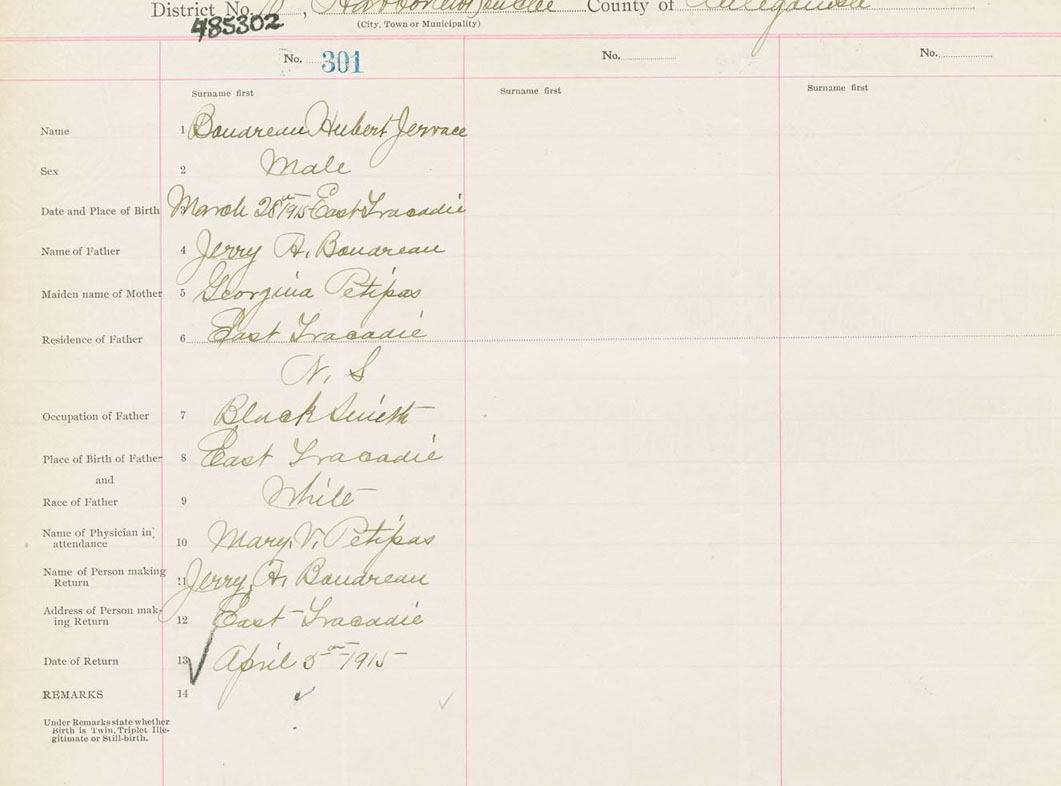 District No. , County of
485302
(City, Town or Municipality)
No. 301 No. No.
Surname first Surname first Surname first
Name 1 Boudreau Hubert Jervace
Sex 2 Male
Date and Place of Birth 3 March 28th 1915 East Tracadie
Name of Father 4 Jerry A. Boudreau
Maiden name of Mother 5 Georgina Petipas
Residence of Father 6 East Tracadie
N. S
Occupation of Father 7 Black Smith
Place of Birth of Father 8 East Tracadie
and
Race of Father 9 White
Name of Physician in
attendance 10 Mary. V. Petipas
Name of Person making
Return 11 Jerry A. Boudreau
Address of Person mak-
ing Return 12 East Tracadie
Date of Return 13 April 5th 1915
REMARKS 14
Under Remarks state whether
Birth is Twin, Triplet Ille-
gitimate or Still-birth.